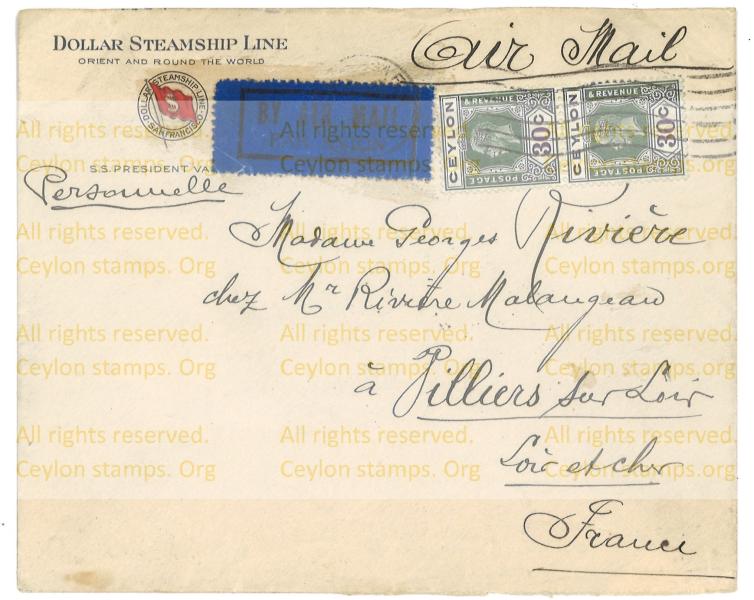 DOLLAR STEAMSHIP LINE
ORIENT AND ROUND THE WORLD
Air Mail
DOLLAR STEAMSHIP LINE
$
SAN FRANCISCO
BY AIR MAIL
PAR AVION
CEYLON
& REVENUE
30C
POSTAGE
CEYLON
& REVENUE
30C
POSTAGE
S.S. PRESIDENT VA
Personnelle
Madame Georges Rivière
chez Mr Rivière Malangeau
à Villiers sur Loir
Loir et cher
France
All rights reserved. All rights reserved. All rights reserved.
Ceylon stamps. Org Ceylon stamps. Org Ceylon stamps. Org
All rights reserved. All rights reserved. All rights reserved.
Ceylon stamps. Org Ceylon stamps. Org Ceylon stamps. Org
All rights reserved. All rights reserved. All rights reserved.
Ceylon stamps. Org Ceylon stamps. Org Ceylon stamps. Org
All rights reserved. All rights reserved. All rights reserved.
Ceylon stamps. Org Ceylon stamps. Org Ceylon stamps. Org